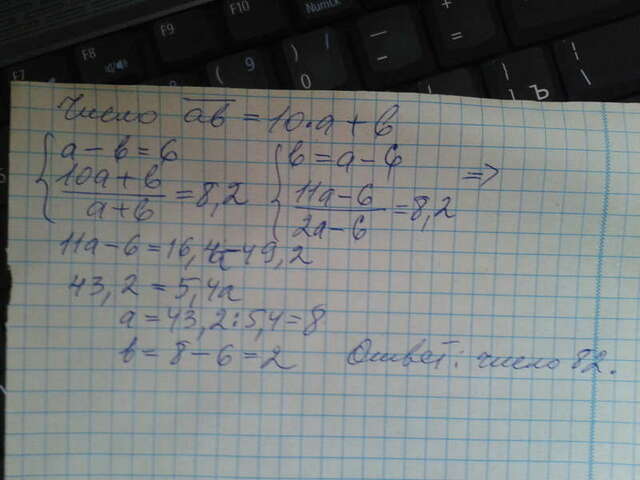 F7 F8 F9 F10 NumLK
( 9 ) 0 — - + =
Ъ
Число ab = 10·a + b
{ a - b = 6 { b = a - 6
(10a + b)/(a + b) = 8,2 (11a - 6)/(2a - 6) = 8,2 =>
11a - 6 = 16,4a - 49,2
43,2 = 5,4a
a = 43,2 : 5,4 = 8
b = 8 - 6 = 2 Ответ: число 82.